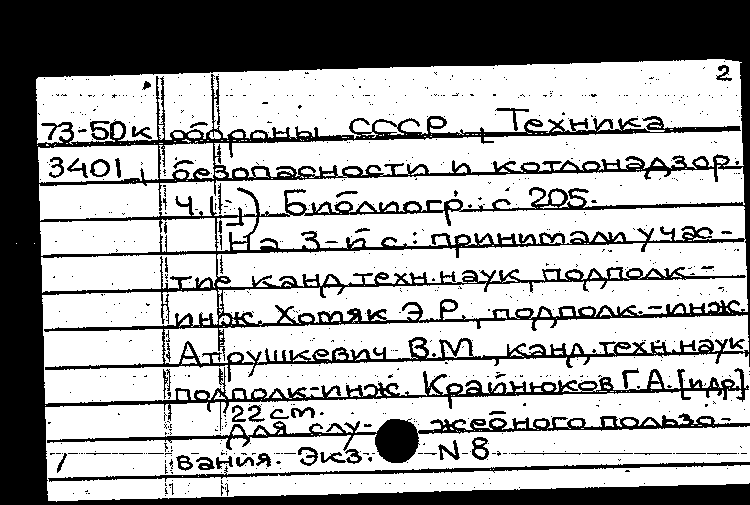 2
73-50к обороны СССР. Техника
3401 безопасности и котлонадзор.
Ч.1). Библиогр.: с 205.
На 3-й с.: принимали учас-
тие канд.техн.наук, подполк.-
инж. Хотяк Э.Р., подполк.-инж.
Атрушкевич В.М., канд.техн.наук,
подполк-инж. Крайнюков Г.А. [и др]
22 ст.
Для слу- жебного пользо-
вания. Экз. N 8